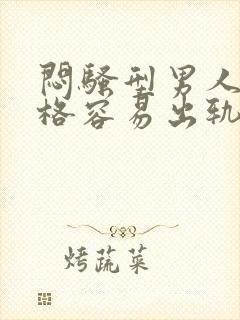 悶騷型男人
格容易出轨
烤蔬菜